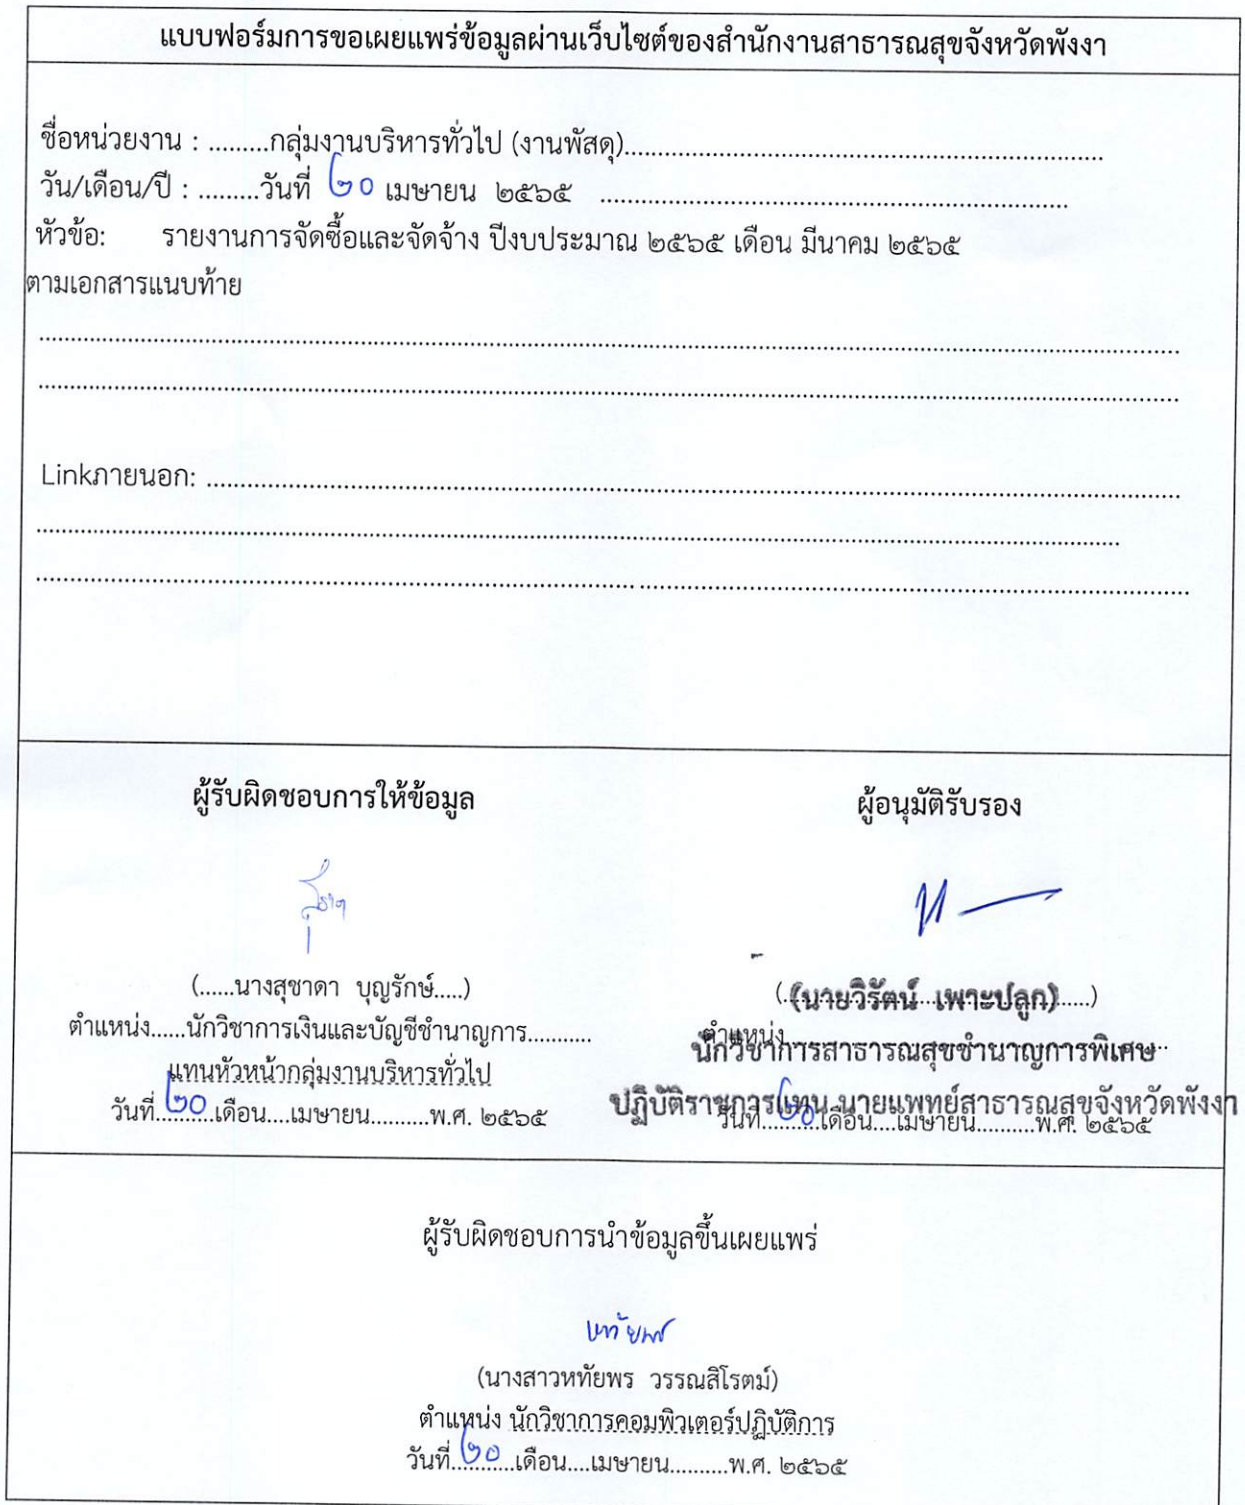 แบบฟอร์มการขอเผยแพร่ข้อมูลผ่านเว็บไซต์ของสำนักงานสาธารณสุขจังหวัดพังงา
ชื่อหน่วยงาน : .........กลุ่มงานบริหารทั่วไป (งานพัสดุ)........................................................................
วัน/เดือน/ปี : .........วันที่ ๒๐ เมษายน ๒๕๖๕ ......................................................................
หัวข้อ: รายงานการจัดซื้อและจัดจ้าง ปีงบประมาณ ๒๕๖๕ เดือน มีนาคม ๒๕๖๕
ตามเอกสารแนบท้าย
Linkภายนอก: ........................................................................
ผู้รับผิดชอบการให้ข้อมูล
(......นางสุชาดา บุญรักษ์.....)
ตำแหน่ง......นักวิชาการเงินและบัญชีชำนาญการ...........
แทนหัวหน้ากลุ่มงานบริหารทั่วไป
วันที่...๒๐...เดือน....เมษายน..........พ.ศ. ๒๕๖๕
ผู้อนุมัติรับรอง
(นายวิรัตน์ เพาะปลูก)
ตำแหน่ง
นักวิชาการสาธารณสุขชำนาญการพิเศษ
ปฏิบัติราชการแทน นายแพทย์สาธารณสุขจังหวัดพังงา
วันที่...๒๐...เดือน....เมษายน..........พ.ศ. ๒๕๖๕
ผู้รับผิดชอบการนำข้อมูลขึ้นเผยแพร่
หทัยพร
(นางสาวหทัยพร วรรณสิโรตม์)
ตำแหน่ง นักวิชาการคอมพิวเตอร์ปฏิบัติการ
วันที่...๒๐...เดือน....เมษายน..........พ.ศ. ๒๕๖๕